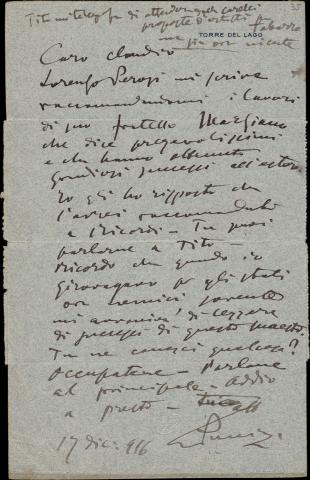 Tito mi telegrafa di attendere
proposte d'artisti
Tabarro
ma fin ora niente
TORRE DEL LAGO
Caro Claudio
Lorenzo Perosi mi scrive
raccomandandomi i lavori
di suo fratello Marziano
che dice pregevolissimi
e che hanno ottenuti
grandiosi successi all'estero
Io gli ho risposto che
l'avrei raccomandato
a Ricordi - Tu puoi
parlarne a Tito -
ricordo che quando io
girovagavo per gli stati
ora nemici sovente
mi avveniva di leggere
di successi di questo maestro.
Tu ne conosci qualcosa?
Occupatene - Parlane
al principale - addio
a presto -
Puccini
17 dic. 916